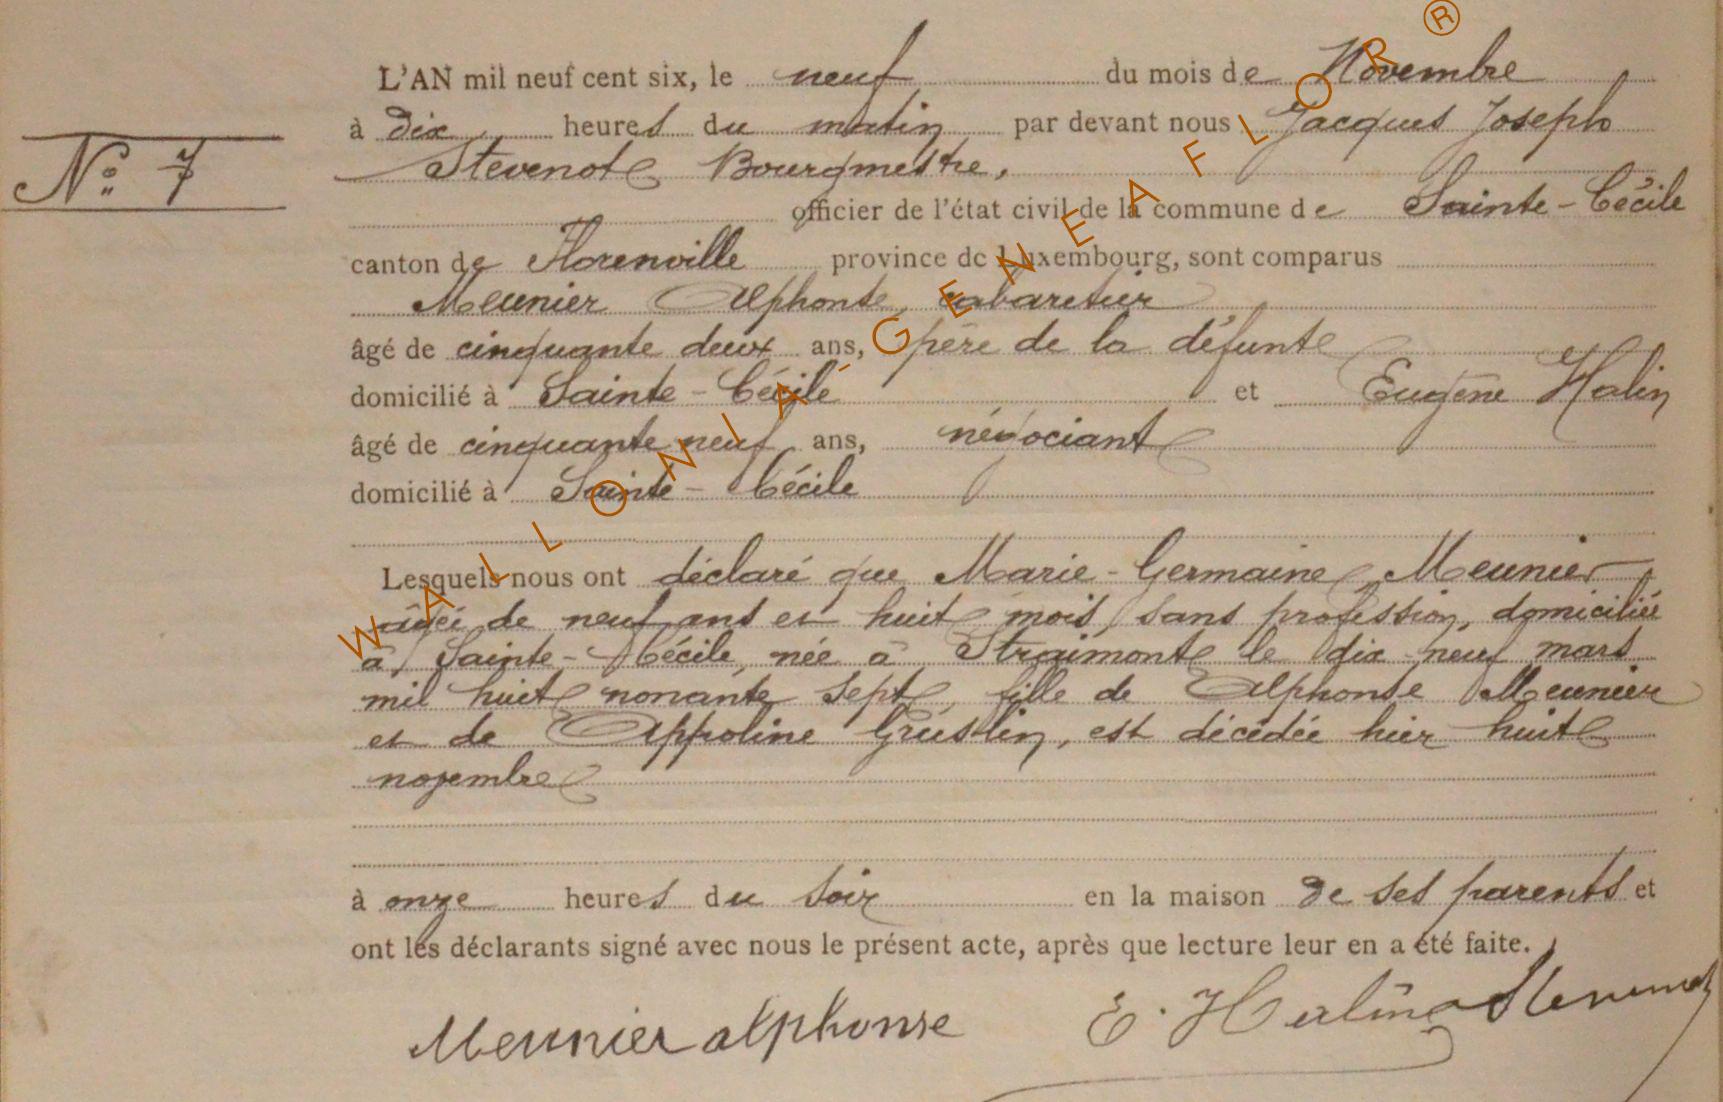 L'AN mil neuf cent six, le neuf du mois de Novembre
à dix heures du matin par devant nous Jacques Joseph
N° 7
Stevenot Bourgmestre,
officier de l'état civil de la commune de Sainte-Cécile
canton de Florenville province de Luxembourg, sont comparus
Meunier Alphonse, cabaretier
âgé de cinquante deux ans, père de la défunte
domicilié à Sainte-Cécile et Eugène Halin
âgé de cinquante neuf ans, négociant
domicilié à Sainte-Cécile
Lesquels nous ont déclaré que Marie-Germaine Meunier
âgée de neuf ans et huit mois, sans profession, domiciliée
à Sainte-Cécile, née à Straimont le dix neuf mars
mil huit nonante sept, fille de Alphonse Meunier
et de Appoline Gruslin, est décédée hier huit
novembre
à onze heures du soir en la maison de ses parents et
ont les déclarants signé avec nous le présent acte, après que lecture leur en a été faite.
Meunier alphonse E. Halin
WALLONIA - GENEAFLOR ®